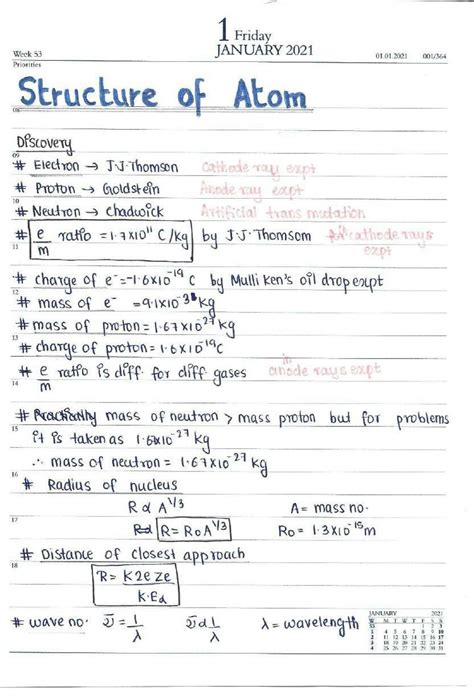 1 Friday
JANUARY 2021
Week 53
01.01.2021 001/364
Priorities
Structure of Atom
08
Discovery
09
# Electron → J.J. Thomson cathode ray expt
# Proton → Goldstein Anode ray expt
10
# Neutron → chadwick Artificial trans mutation
# e/m ratio = 1.7x10¹¹ C/kg by J.J. Thomsom cathode rays expt
11
# charge of e⁻ = -1.6x10⁻¹⁹ C by Mulliken's oil drop expt
12
# mass of e⁻ = 9.1x10⁻³¹ kg
# mass of proton = 1.67x10⁻²⁷ kg
13
# charge of proton = 1.6x10⁻¹⁹C
# e/m ratio is diff. for diff gases in anode rays expt
14
# Practically mass of neutron > mass proton but for problems
15
it is taken as 1.6x10⁻²⁷ kg
∴ mass of neutron = 1.67x10⁻²⁷ kg
16
# Radius of nucleus
R α A^1/3 A = mass no.
17
R = R₀A^1/3 R₀ = 1.3x10⁻¹⁵m
# Distance of closest approach
18
R = K2e Ze / K.Eα
# wave no. ν̄ = 1/λ ν̄ α 1/λ λ = wavelength
JANUARY 2021
W M T W T F S S
53 1 2 3
1 4 5 6 7 8 9 10
2 11 12 13 14 15 16 17
3 18 19 20 21 22 23 24
4 25 26 27 28 29 30 31